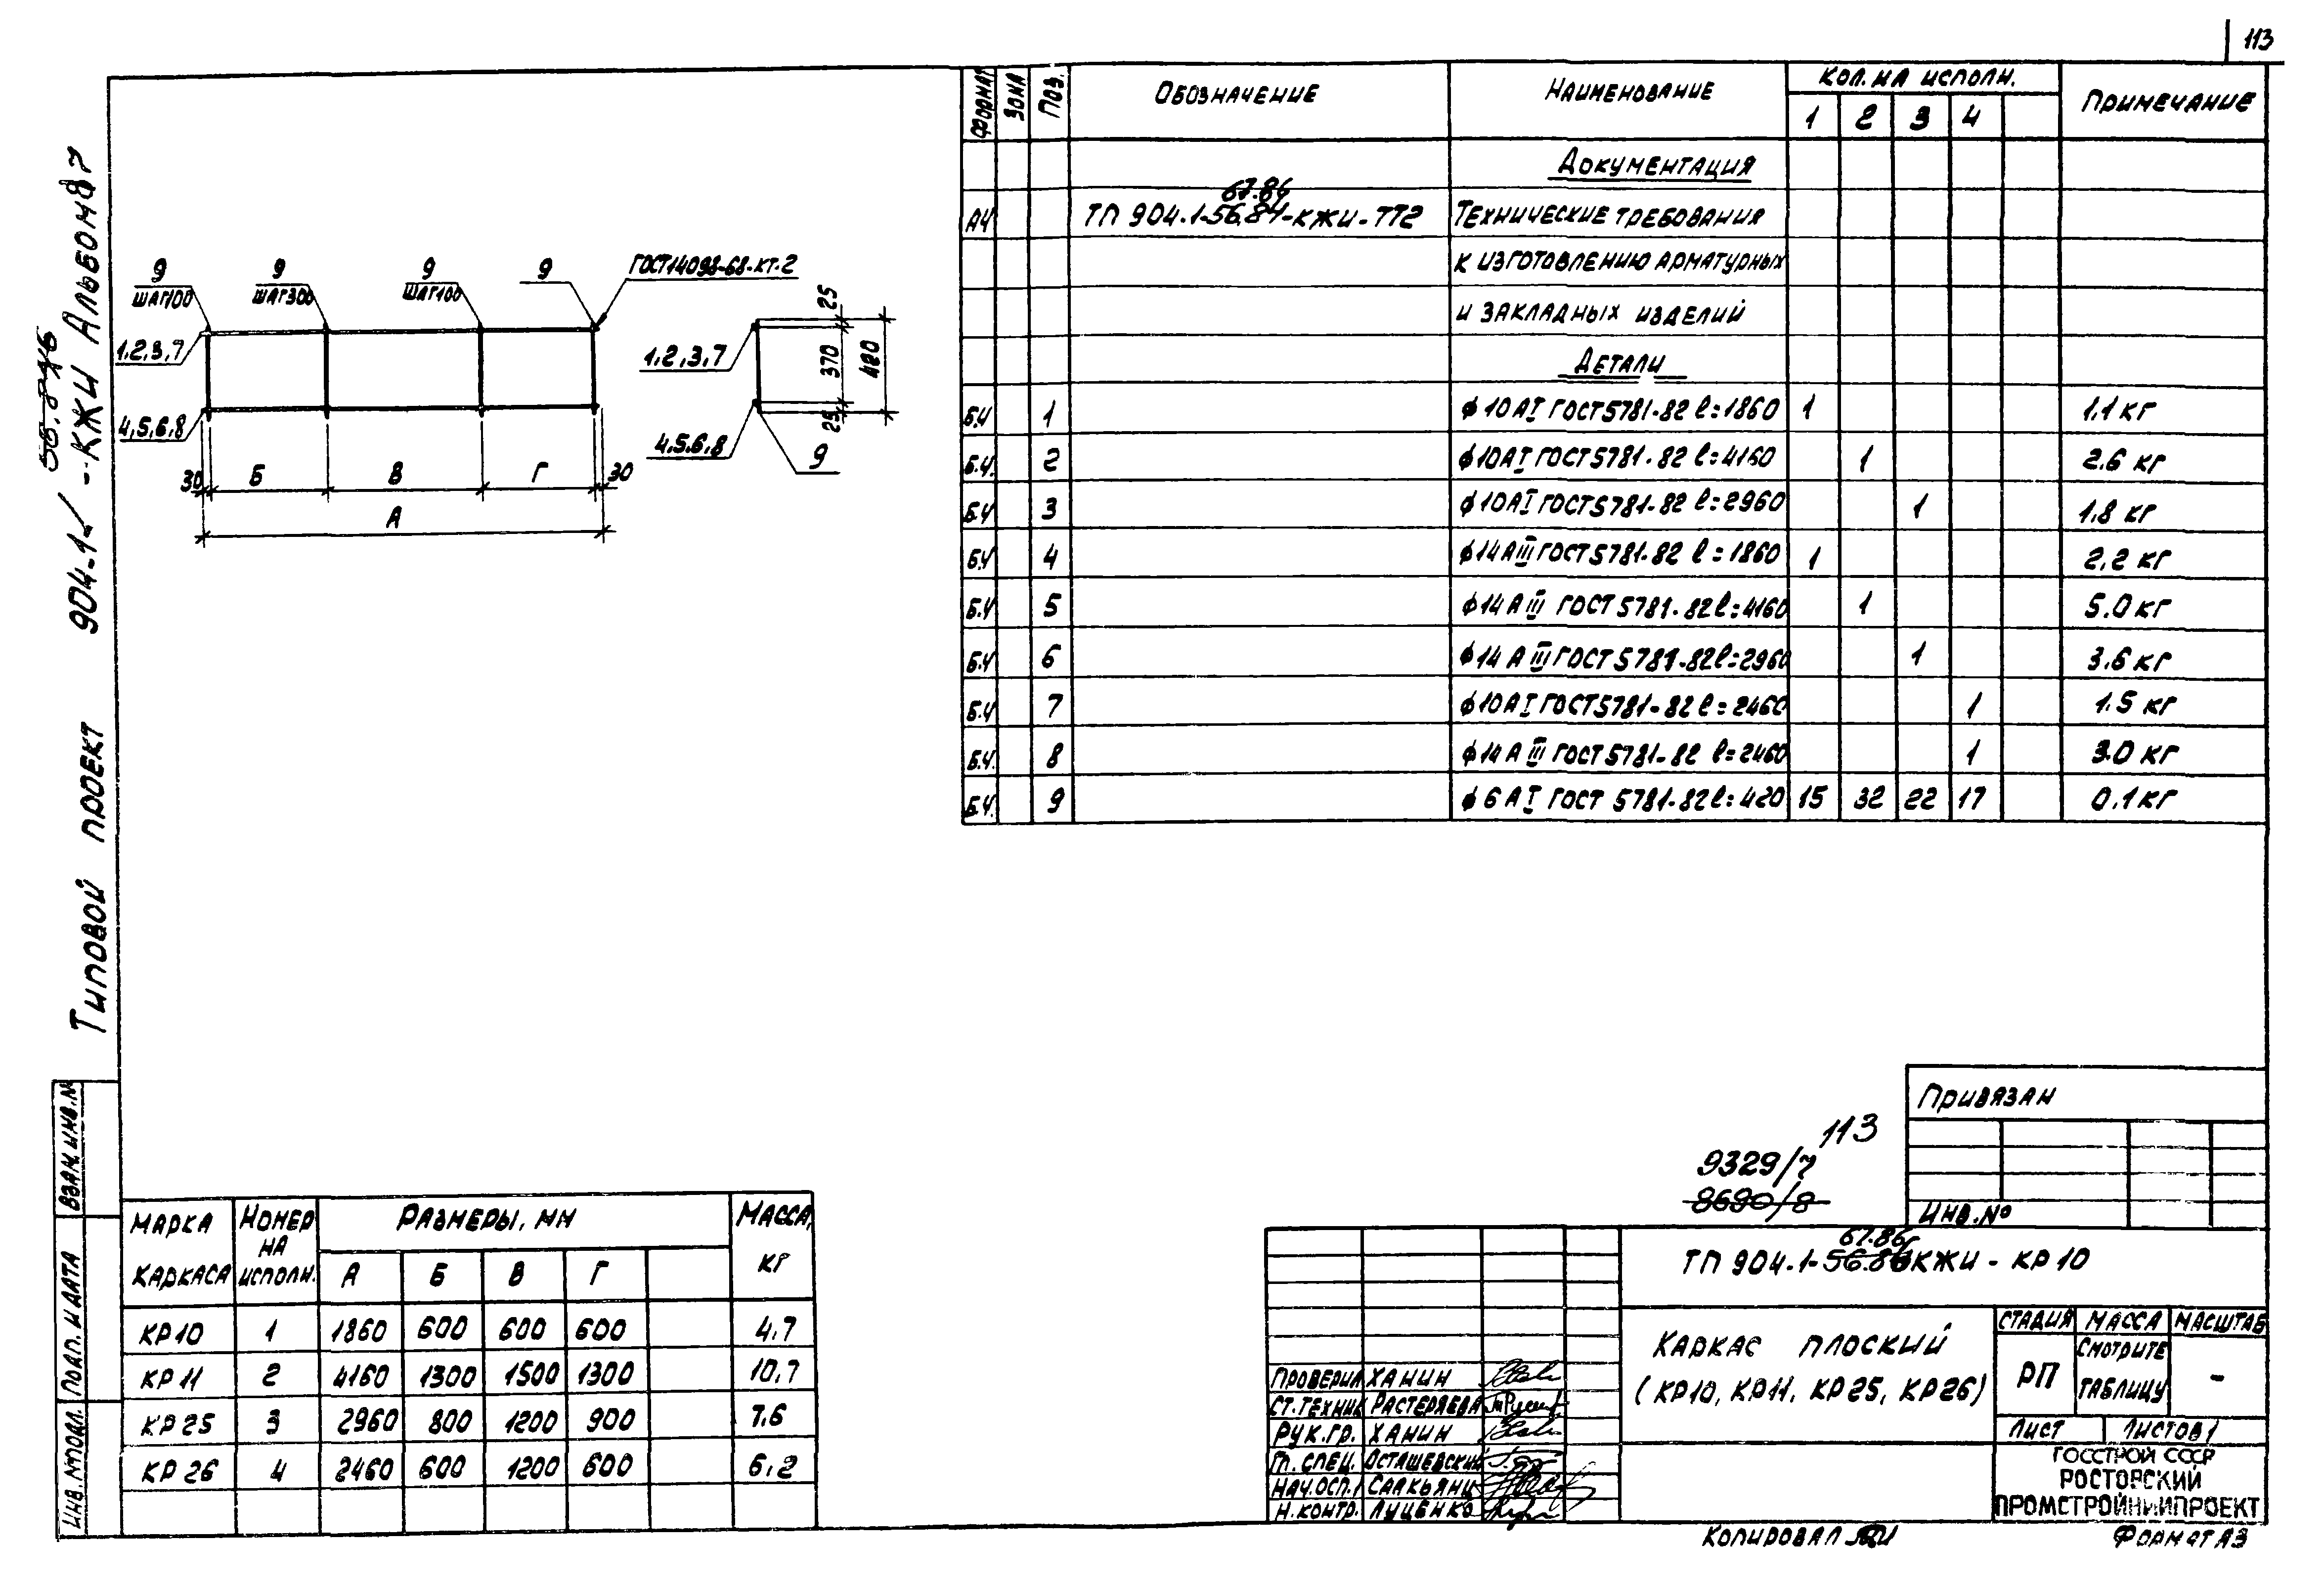 113
ФОРМАТ ЗОНА ПОЗ. ОБОЗНАЧЕНИЕ НАИМЕНОВАНИЕ КОЛ. НА ИСПОЛН. ПРИМЕЧАНИЕ
1 2 3 4
ДОКУМЕНТАЦИЯ
67.86
А4 ТП 904.1-56.84-КЖИ-ТТ2 ТЕХНИЧЕСКИЕ ТРЕБОВАНИЯ
К ИЗГОТОВЛЕНИЮ АРМАТУРНЫХ
И ЗАКЛАДНЫХ ИЗДЕЛИЙ
ДЕТАЛИ
Б.Ч 1 ϕ10АI ГОСТ 5781-82 ℓ=1860 1 1.1 КГ
Б.Ч. 2 ϕ10АI ГОСТ 5781-82 ℓ=4160 1 2.6 КГ
Б.Ч 3 ϕ10АI ГОСТ 5781-82 ℓ=2960 1 1.8 КГ
Б.Ч 4 ϕ14АIII ГОСТ 5781-82 ℓ=1860 1 2.2 КГ
Б.Ч 5 ϕ14АIII ГОСТ 5781-82 ℓ=4160 1 5.0 КГ
Б.Ч 6 ϕ14АIII ГОСТ 5781-82 ℓ=2960 1 3.6 КГ
Б.Ч 7 ϕ10АI ГОСТ 5781-82 ℓ=2460 1 1.5 КГ
Б.Ч. 8 ϕ14АIII ГОСТ 5781-82 ℓ=2460 1 3.0 КГ
Б.Ч. 9 ϕ6АI ГОСТ 5781-82 ℓ=420 15 32 22 17 0.1 КГ
9 9 9 9 ГОСТ 14098-68-КТ-2
ШАГ100 ШАГ300 ШАГ100
1,2,3,7
4,5,6,8
30 Б В Г 30
А
1,2,3,7
4,5,6,8
9
25
370
25
420
ТИПОВОЙ ПРОЕКТ 904-1- -КЖИ АЛЬБОМ 7
ВЗАМ. ИНВ. №
ПОДП. И ДАТА
ИНВ. № ПОДЛ.
МАРКА КАРКАСА НОМЕР НА ИСПОЛН. РАЗМЕРЫ, ММ МАССА, КГ
А Б В Г
КР10 1 1860 600 600 600 4,7
КР11 2 4160 1300 1500 1300 10,7
КР25 3 2960 800 1200 900 7.6
КР26 4 2460 600 1200 600 6,2
113
9329/7
8690/8
ПРИВЯЗАН
ИНВ. №
67.86
ТП 904.1-56.84 КЖИ - КР10
КАРКАС ПЛОСКИЙ
(КР10, КР11, КР25, КР26)
СТАДИЯ МАССА МАСШТАБ
РП СМОТРИТЕ ТАБЛИЦУ -
ЛИСТ ЛИСТОВ 1
ГОССТРОЙ СССР
РОСТОВСКИЙ
ПРОМСТРОЙНИИПРОЕКТ
ПРОВЕРИЛ ХАНИН
СТ. ТЕХНИК РАСТЕРЯЕВА
РУК. ГР. ХАНИН
ГЛ. СПЕЦ. ОСТАШЕВСКИЙ
НАЧ. ОСП.1 СААКЬЯНЦ
Н. КОНТР. ЛУЦЕНКО
КОПИРОВАЛ
ФОРМАТ А3